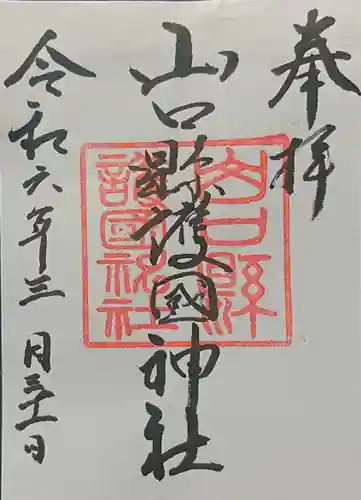 奉拝
山口縣護國神社
山口縣
護國神社
令和六年三月三十一日